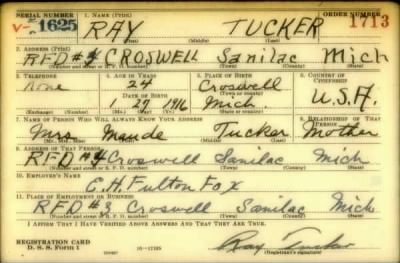 SERIAL NUMBER 1. NAME (Print) ORDER NUMBER
V- 1625 RAY TUCKER 1713
(First) (Middle) (Last)
2. ADDRESS (Print)
RFD # CROSWELL Sanilac Mich
(Number and street or R. F. D. number) (Town) (County) (State)
3. TELEPHONE 4. AGE IN YEARS 5. PLACE OF BIRTH 6. COUNTRY OF CITIZENSHIP
None 24 Croswell
DATE OF BIRTH
1 27 1916 Mich. U.S.A.
(Exchange) (Number) (Mo.) (Day) (Yr.) (State or country)
7. NAME OF PERSON WHO WILL ALWAYS KNOW YOUR ADDRESS 8. RELATIONSHIP OF THAT PERSON
Mrs. Maude Tucker Mother
(Mr., Mrs., Miss) (First) (Middle) (Last)
9. ADDRESS OF THAT PERSON
RFD # Croswell Sanilac Mich
(Number and street or R. F. D. number) (Town) (County) (State)
10. EMPLOYER'S NAME
C.H. Fulton Fox
11. PLACE OF EMPLOYMENT OR BUSINESS
RFD # 3 Croswell Sanilac Mich
(Number and street or R. F. D. number) (Town) (County) (State)
I AFFIRM THAT I HAVE VERIFIED ABOVE ANSWERS AND THAT THEY ARE TRUE.
REGISTRATION CARD
D. S. S. FORM 1 Ray Tucker
(Registrant's signature)